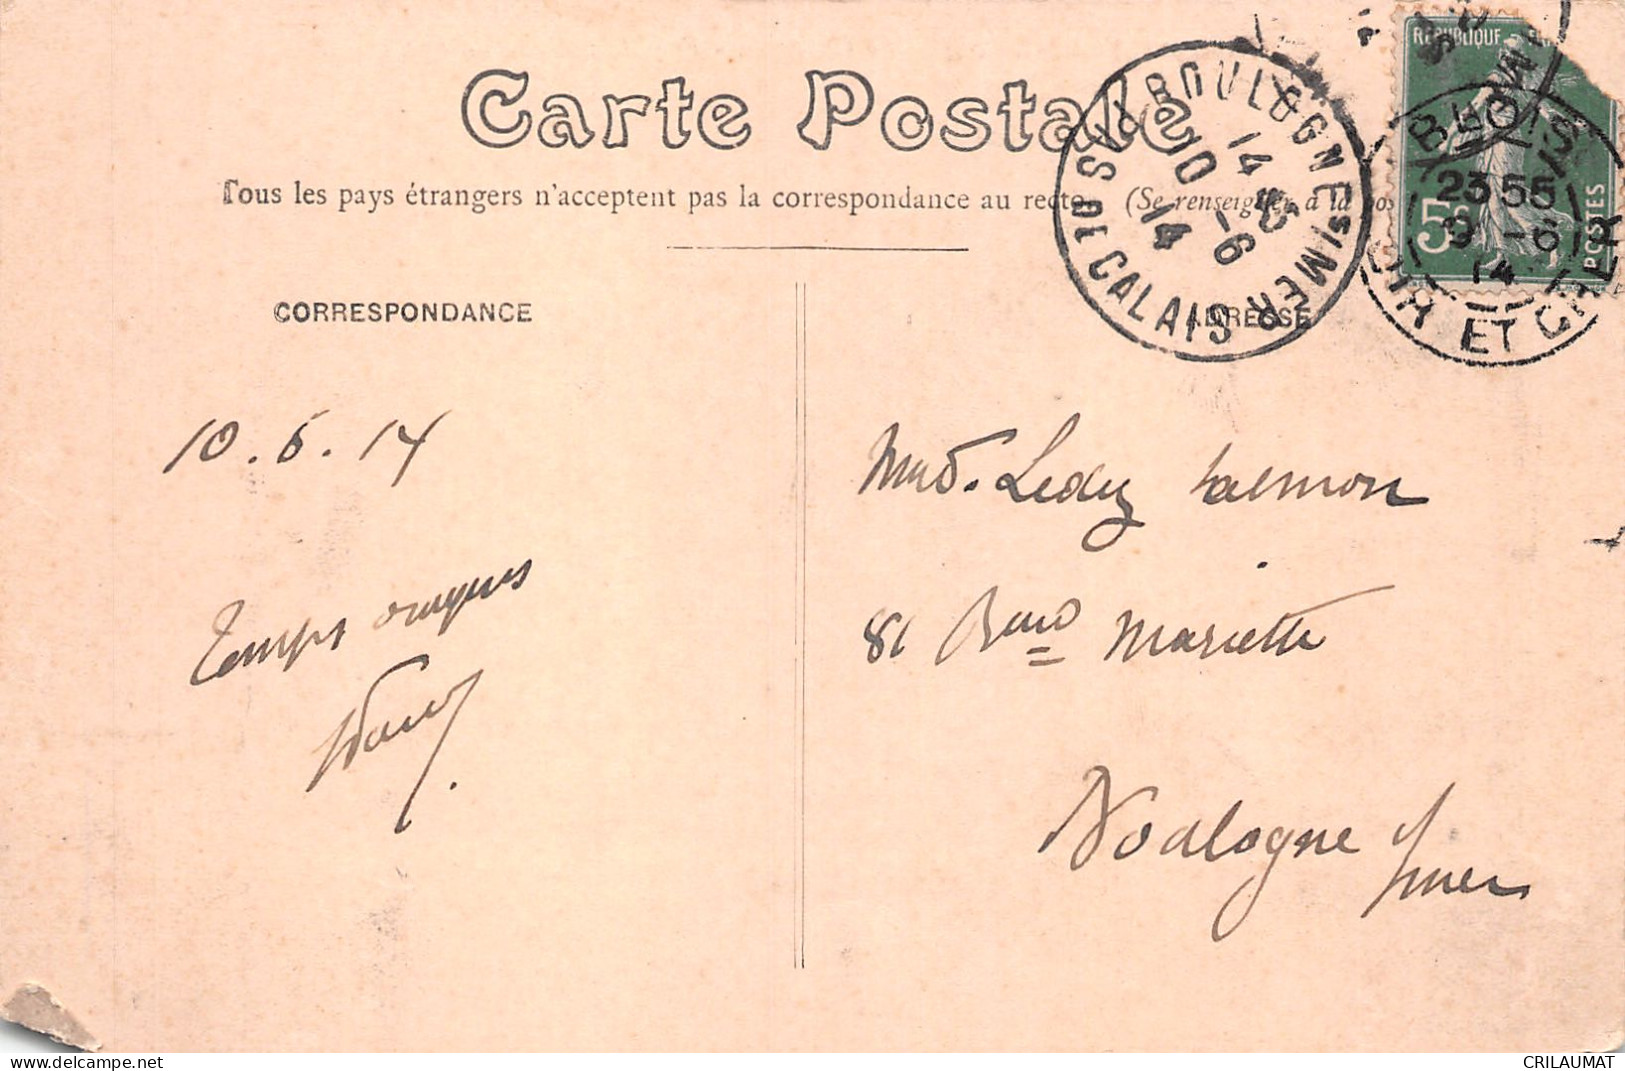 Carte Postale
Tous les pays étrangers n'acceptent pas la correspondance au recto (Se renseigner à la pos
CORRESPONDANCE
ADRESSE
BOULOGNE S/MER
14 45
10 -6
14
PAS DE CALAIS
RÉPUBLIQUE
5
POSTES
BLOIS
23 55
9 -6
14
LOIR ET CHER
10.6.14
Temps orageux
Mad. Leduy Salmon
81 Bould Mariette
Boulogne s/mer
www.delcampe.net
CRILAUMAT